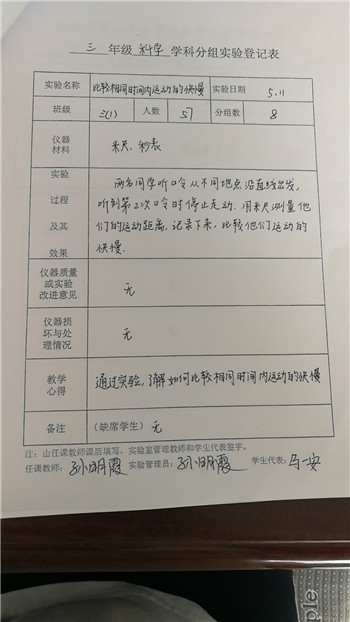 三 年级 科学 学科分组实验登记表
实验名称 比较相同时间内运动的快慢 实验日期 5.11
班级 三(1) 人数 57 分组数 8
仪器
材料
米尺、秒表
实验
过程
及其
效果
两名同学听口令从不同地点沿直线出发,
听到第2次口令时停止走动.用米尺测量他
们的运动距离,记录下来,比较他们运动的
快慢.
仪器质量
或实验
改进意见
无
仪器损
坏与处
理情况
无
教学
心得
通过实验,了解如何比较相同时间内运动的快慢
备注 (缺席学生) 无
注:由任课教师课后填写,实验室管理教师和学生代表签字。
任课教师: 孙明霞 实验管理员: 孙明霞 学生代表: 马一安
ple